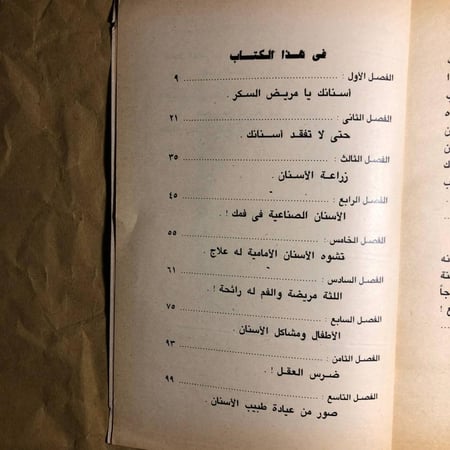 فى هذا الكتاب
الفصل الأول : ........ ٩
أسنانك يا مريض السكر .
الفصل الثانى : ........ ٢١
حتى لا تفقد أسنانك .
الفصل الثالث : ........ ٣٥
زراعة الأسنان .
الفصل الرابع : ........ ٤٥
الأسنان الصناعية فى فمك ! .
الفصل الخامس : ........ ٥٥
تشوه الأسنان الأمامية له علاج .
الفصل السادس : ........ ٦١
اللثة مريضة والفم له رائحة ! .
الفصل السابع : ........ ٧٥
الأطفال ومشاكل الأسنان .
الفصل الثامن : ........ ٩٣
ضرس العقل ! .
الفصل التاسع : ........ ٩٩
صور من عيادة طبيب الأسنان .